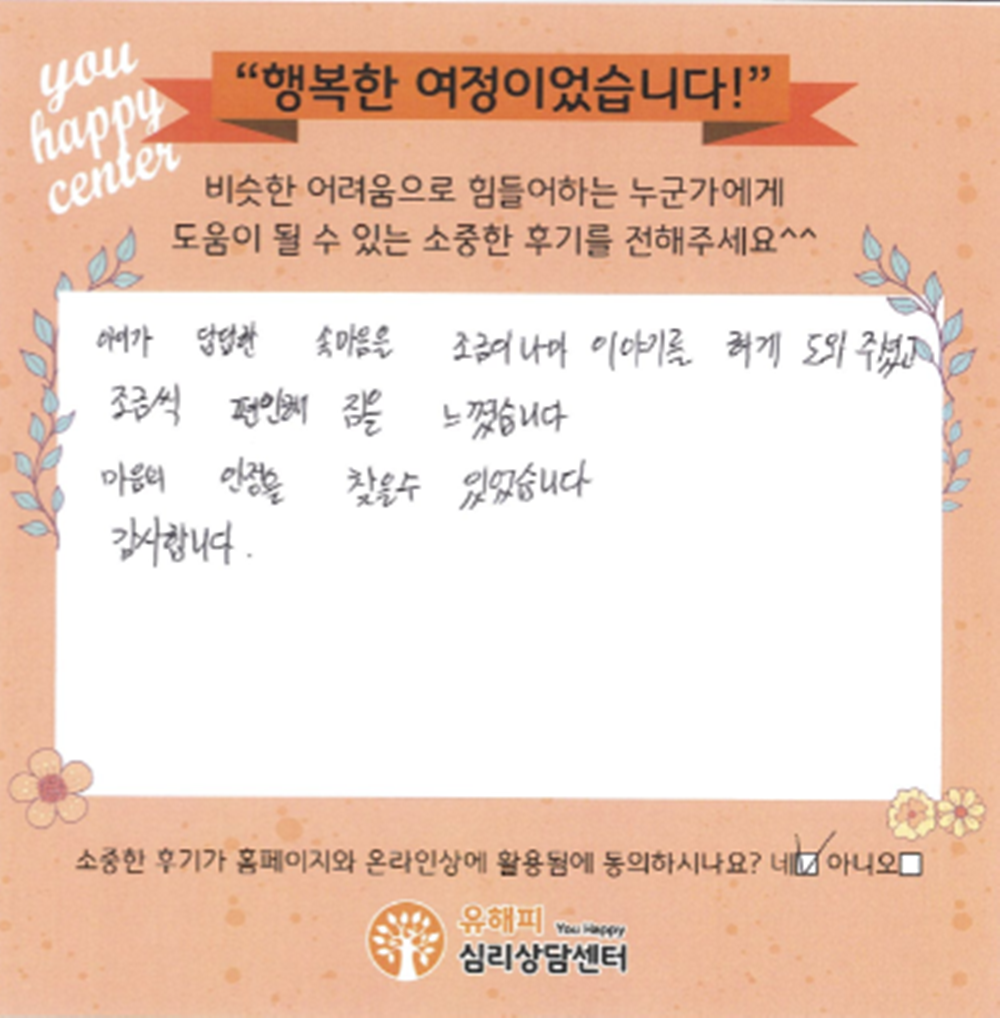 you
happy
center
“행복한 여정이었습니다!”
비슷한 어려움으로 힘들어하는 누군가에게
도움이 될 수 있는 소중한 후기를 전해주세요^^
아이가 답답한 속마음을 조금이나마 이야기를 하게 도와 주셨고
조금씩 편안해 짐을 느꼈습니다
마음의 안정을 찾을수 있었습니다
감사합니다.
소중한 후기가 홈페이지와 온라인상에 활용됨에 동의하시나요? 네 아니오
유해피 You Happy
심리상담센터